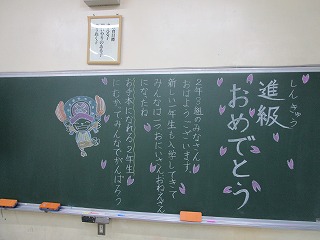 しんきゅう
進級
おめでとう
2年3組のみなさん
おはようございます
新しい一年生も入学してきて
みんなは一つおにいさんおねえさん
になったね
お手本になれる2年生
にむかってみんなでがんばろう